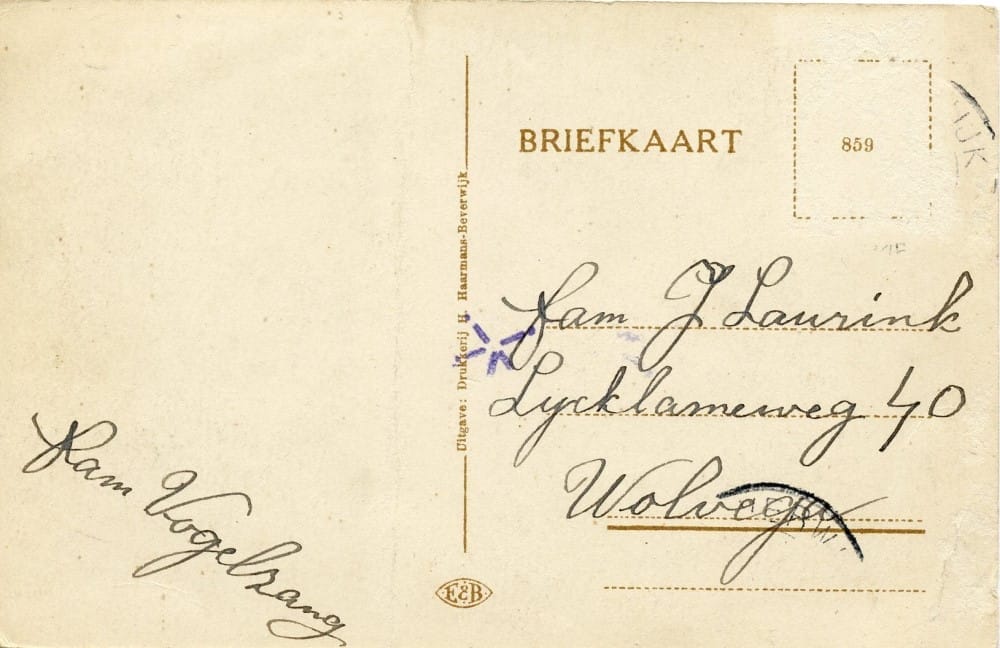 BRIEFKAART
859
IJK
Uitgave: Drukkerij H. Haarmans-Beverwijk
Fam J Laurink
Lycklameweg 40
Wolvega
Fam Vogelzang
E&B